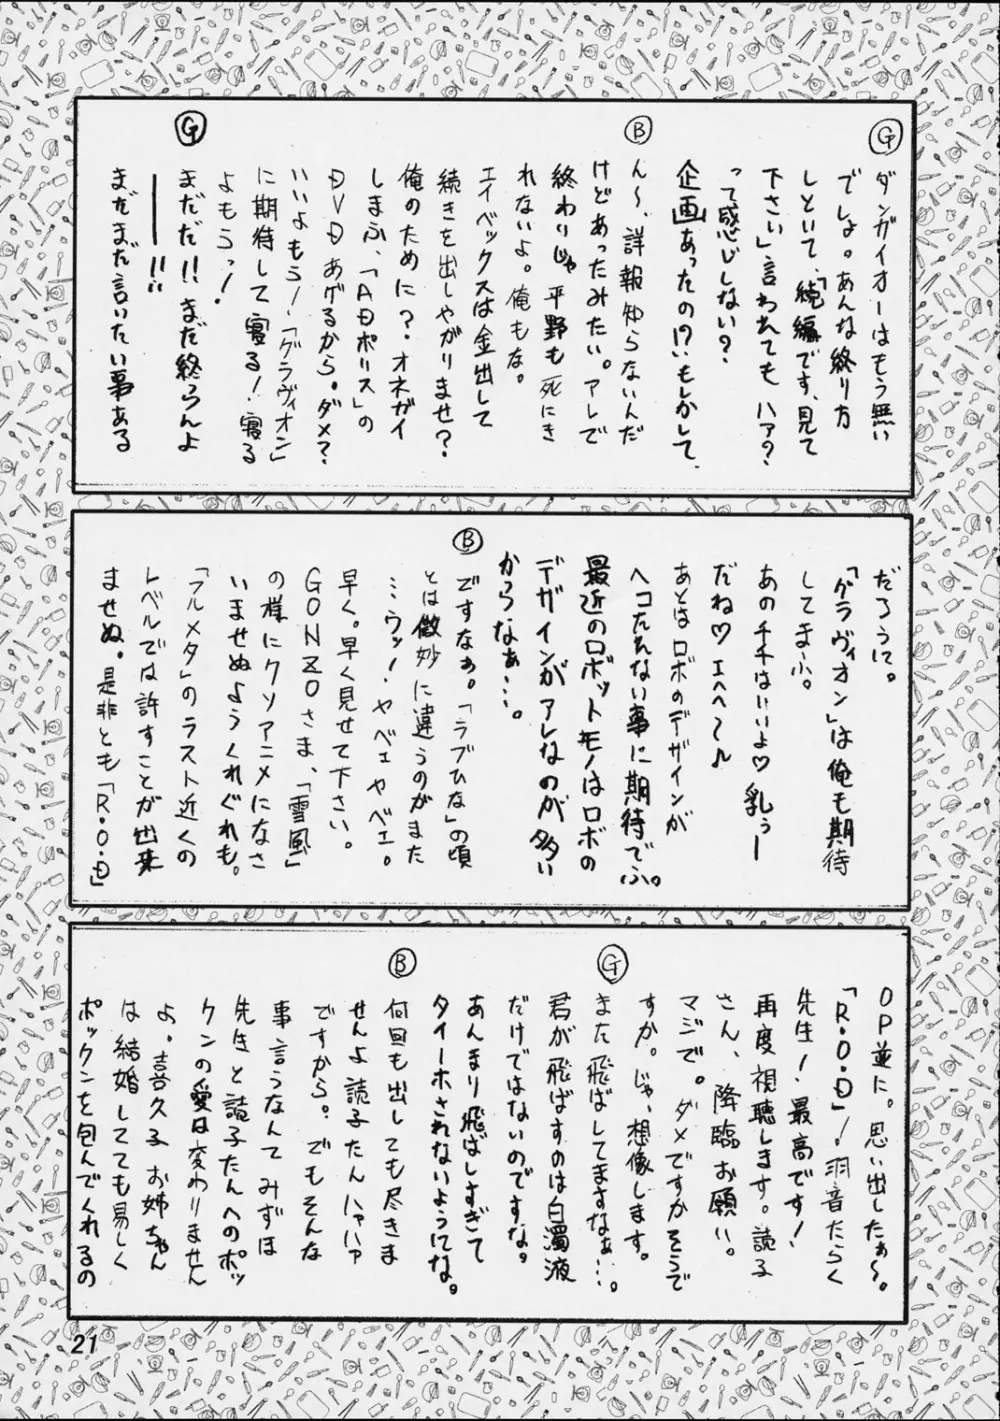 Ⓖ
ダンガイオーはもう無い
でしょ。あんな終り方
しといて、「続編です、見て
下さい」言われても ハァ?
って感じしない?
企画あったの!?いもしかして、
Ⓑ
ん〜、詳報知らないんだ
けどあったみたい。アレで
終わりじゃ 平野も死にき
れないよ。俺もな。
エイベックスは金出して
続きを出しやがりませ?
俺のために?オネガイ
しまふ、「ADポリス」の
DVDあげるから。ダメ?
いいよもう!「グラヴィオン」
に期待して寝る!寝る
よもう!
Ⓖ
まだだ!!まだ終らんよ
――!!
まだまだ言いたい事ある
だろうに。
「グラヴィオン」は俺も期待
してまふ。
あの千千はいいよ♡乳ぅー
だね♡エヘヘ〜♪
あとはロボのデザインが
ヘコたれない事に期待でふ。
最近のロボットモノはロボの
デザインがアレなのが多い
からなぁ…。
Ⓑ
ですなぁ。「ラブひな」の頃
とは微妙に違うのがまた
…ウッ!ヤベェヤベエ。
早く。早く見せて下さい。
GONZOさま、「雪風」
の様にクソアニメになさ
いませぬようくれぐれも。
「フルメタ」のラスト近くの
レベルでは許すことが出来
ませぬ。是非とも「R・O・D」
OP並に。思い出したぁ〜。
「R・O・D」!羽音たらく
先生!最高です!
再度視聴します。読子
さん、降臨お願い。
マジで。ダメですかそうで
すか。じゃ、想像します。
Ⓖ
また飛ばしてますなぁ…。
君が飛ばすのは白濁液
だけではないのですな。
あんまり飛ばしすぎて
タイーホされないようにな。
Ⓑ
何回も出しても尽きま
せんよ読子たんハァハァ
ですから。でもそんな
事言うなんてみずほ
先生と読子たんへのポッ
クンの愛は変わりません
よ。喜久子お姉ちゃん
は結婚してても易しく
ポックンを包んでくれるの
21